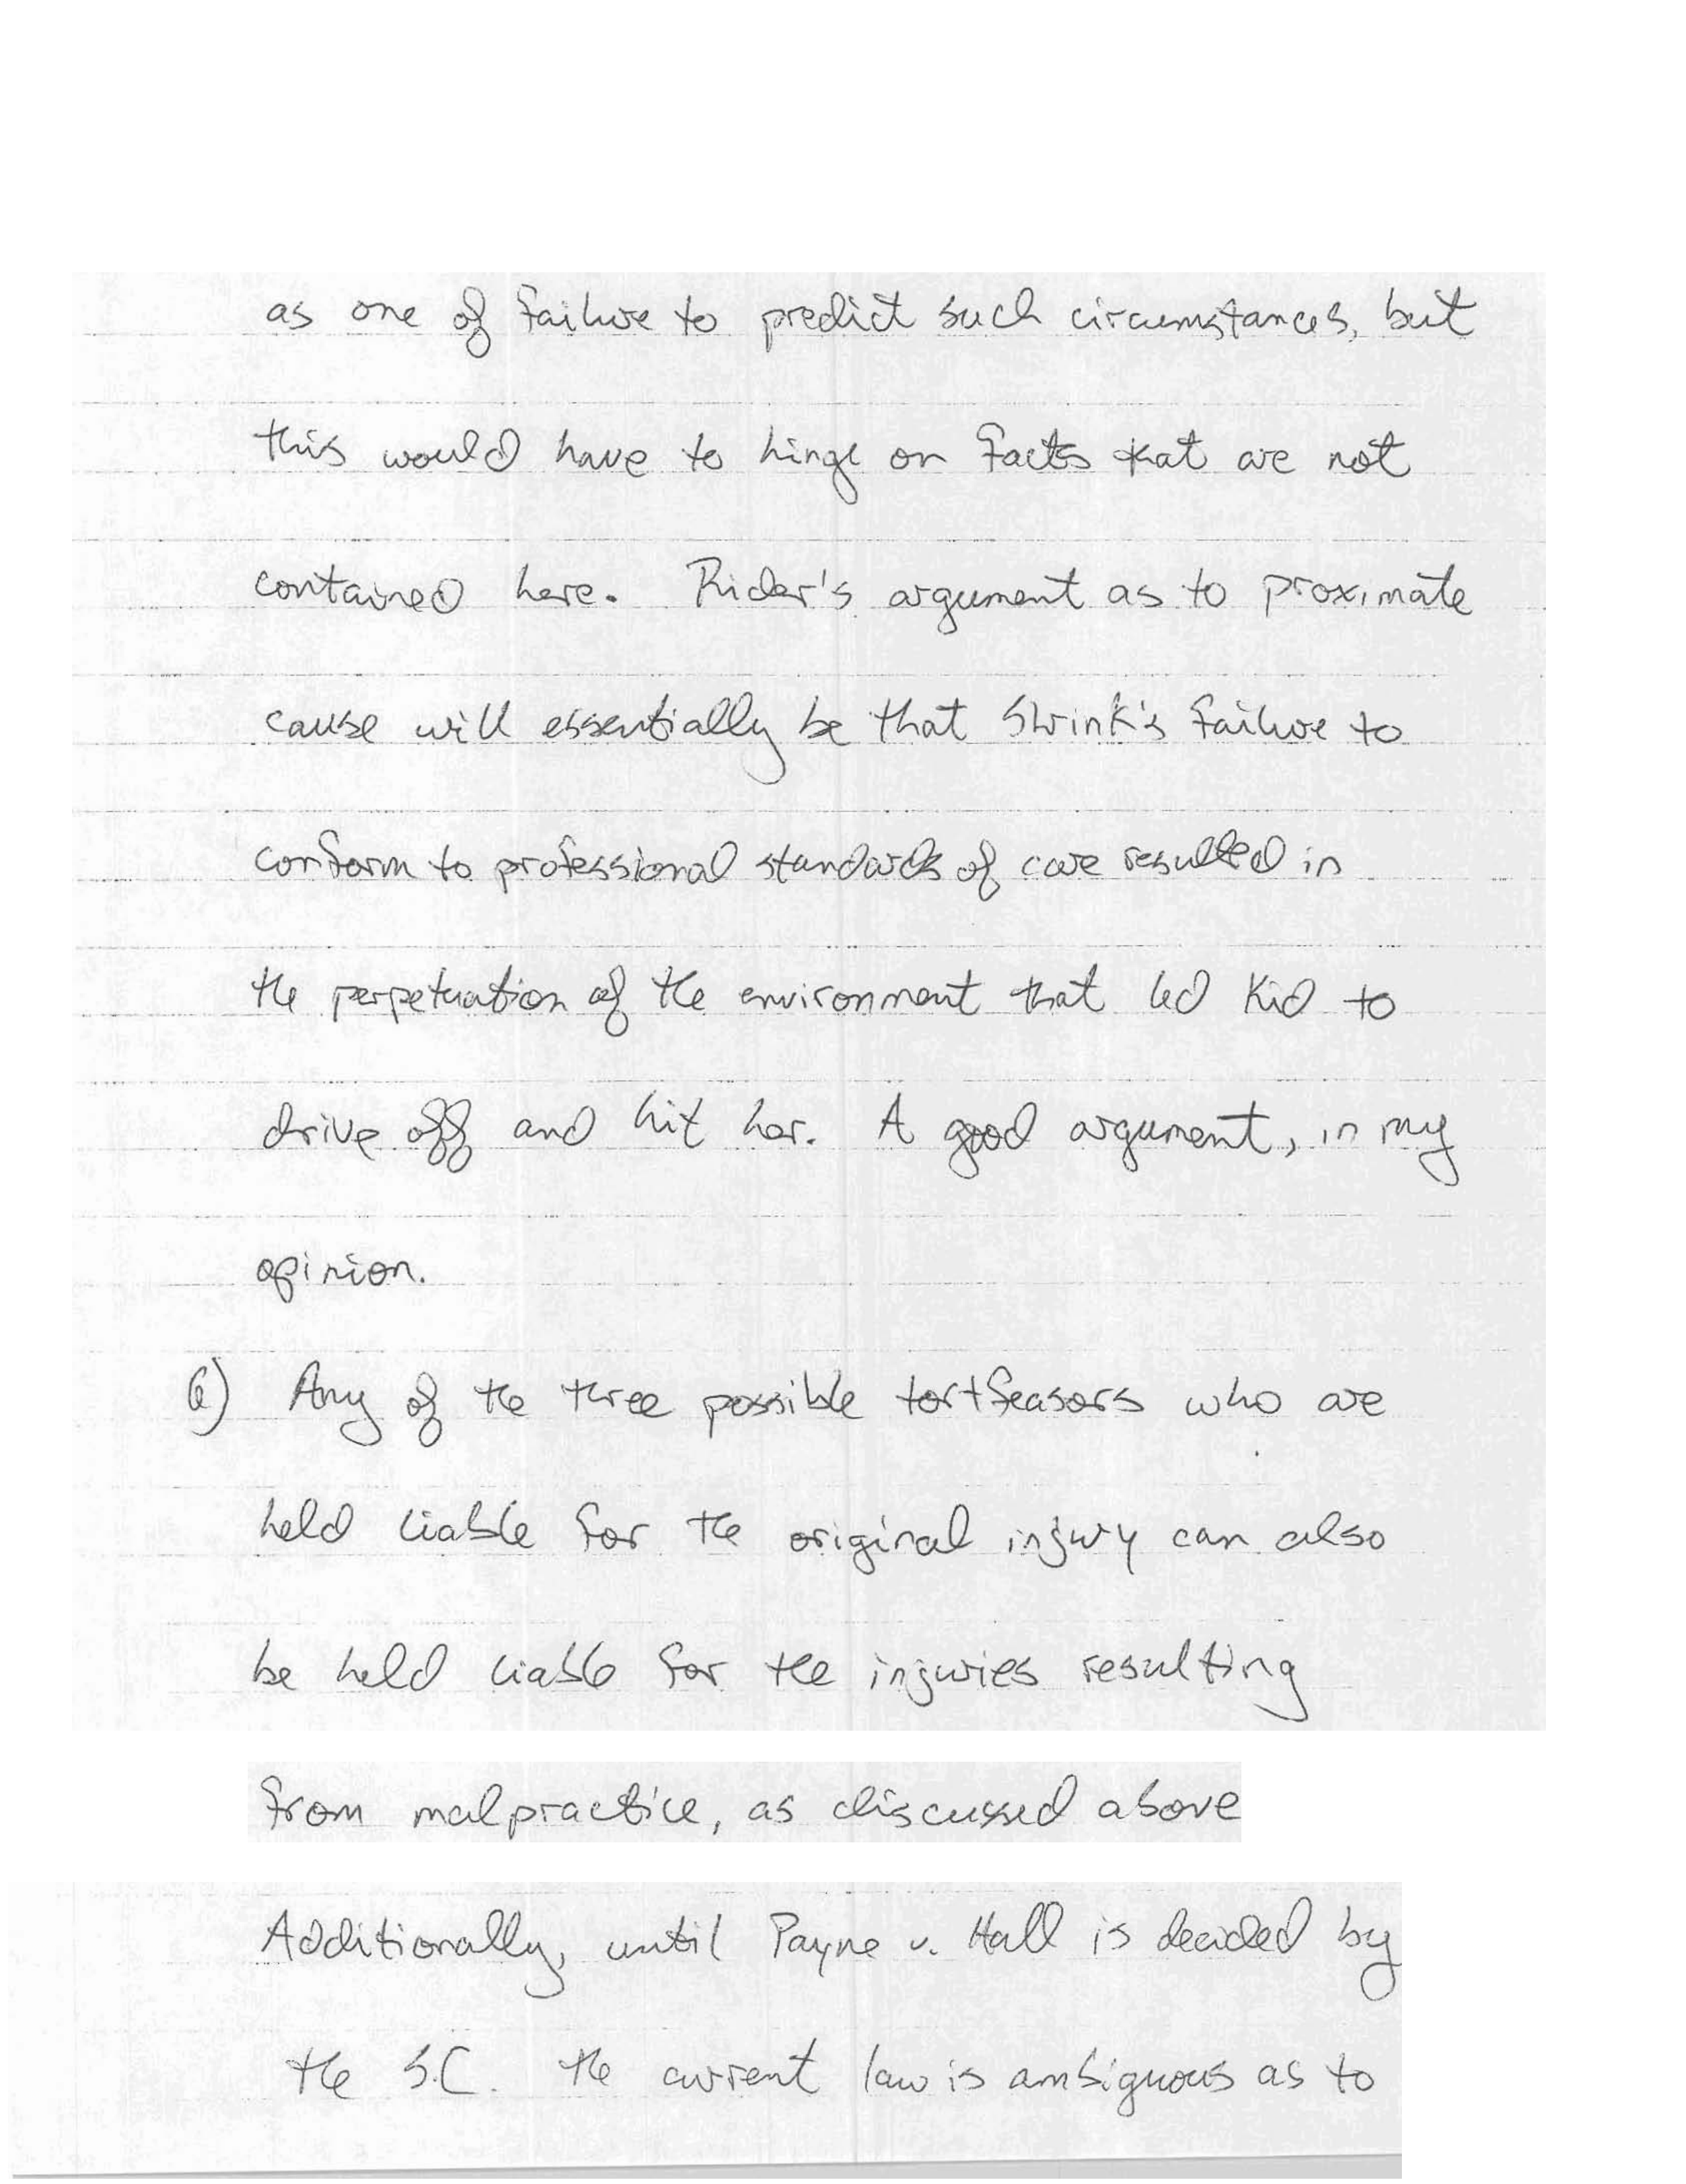 as one of failure to predict such circumstances, but
this would have to hinge on facts that are not
contained here. Rider's argument as to proximate
cause will essentially be that Shrink's failure to
conform to professional standards of care resulted in
the perpetuation of the environment that led Kid to
drive off and hit her. A good argument, in my
opinion.
6) Any of the three possible tortfeasors who are
held liable for the original injury can also
be held liable for the injuries resulting
from malpractice, as discussed above
Additionally, until Payne v. Hall is decided by
the S.C. the current law is ambiguous as to